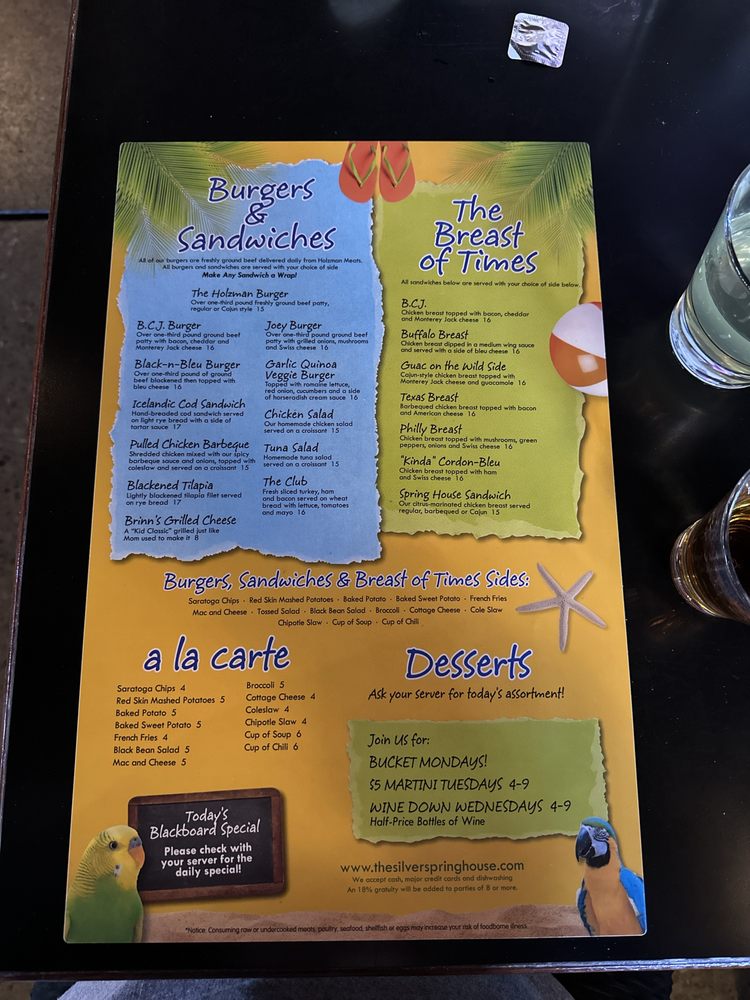 Burgers
&
Sandwiches
All of our burgers are freshly ground beef delivered daily from Holzman Meats.
All burgers and sandwiches are served with your choice of side
Make Any Sandwich a Wrap!
The Holzman Burger
Over one-third pound freshly ground beef patty,
regular or Cajun style 15
B.C.J. Burger
Over one-third pound ground beef
patty with bacon, cheddar and
Monterey Jack cheese 16
Black-n-Bleu Burger
Over one-third pound of ground
beef blackened then topped with
bleu cheese 16
Icelandic Cod Sandwich
Hand-breaded cod sandwich served
on light rye bread with a side of
tartar sauce 17
Pulled Chicken Barbeque
Shredded chicken mixed with our spicy
barbeque sauce and onions, topped with
coleslaw and served on a croissant 15
Blackened Tilapia
Lightly blackened tilapia filet served
on rye bread 17
Brinn's Grilled Cheese
A "Kid Classic" grilled just like
Mom used to make it 8
Joey Burger
Over one-third pound ground beef
patty with grilled onions, mushrooms
and Swiss cheese 16
Garlic Quinoa
Veggie Burger
Topped with romaine lettuce,
red onion, cucumbers and a side
of horseradish cream sauce 16
Chicken Salad
Our homemade chicken salad
served on a croissant 15
Tuna Salad
Homemade tuna salad
served on a croissant 15
The Club
Fresh sliced turkey, ham
and bacon served on wheat
bread with lettuce, tomatoes
and mayo 16
The
Breast
of Times
All sandwiches below are served with your choice of side below.
B.C.J.
Chicken breast topped with bacon, cheddar
and Monterey Jack cheese 16
Buffalo Breast
Chicken breast dipped in a medium wing sauce
and served with a side of bleu cheese 16
Guac on the Wild Side
Cajun-style chicken breast topped with
Monterey Jack cheese and guacamole 16
Texas Breast
Barbequed chicken breast topped with bacon
and American cheese 16
Philly Breast
Chicken breast topped with mushrooms, green
peppers, onions and Swiss cheese 16
"Kinda" Cordon-Bleu
Chicken breast topped with ham
and Swiss cheese 16
Spring House Sandwich
Our citrus-marinated chicken breast served
regular, barbequed or Cajun 15
Burgers, Sandwiches & Breast of Times Sides:
Saratoga Chips · Red Skin Mashed Potatoes · Baked Potato · Baked Sweet Potato · French Fries
Mac and Cheese · Tossed Salad · Black Bean Salad · Broccoli · Cottage Cheese · Cole Slaw
Chipotle Slaw · Cup of Soup · Cup of Chili
a la carte
Saratoga Chips 4
Red Skin Mashed Potatoes 5
Baked Potato 5
Baked Sweet Potato 5
French Fries 4
Black Bean Salad 5
Mac and Cheese 5
Broccoli 5
Cottage Cheese 4
Coleslaw 4
Chipotle Slaw 4
Cup of Soup 6
Cup of Chili 6
Desserts
Ask your server for today's assortment!
Join Us for:
BUCKET MONDAYS!
$5 MARTINI TUESDAYS 4-9
WINE DOWN WEDNESDAYS 4-9
Half-Price Bottles of Wine
Today's
Blackboard Special
Please check with
your server for the
daily special!
www.thesilverspringhouse.com
We accept cash, major credit cards and dishwashing
An 18% gratuity will be added to parties of 8 or more.
*Notice: Consuming raw or undercooked meats, poultry, seafood, shellfish or eggs may increase your risk of foodborne illness.